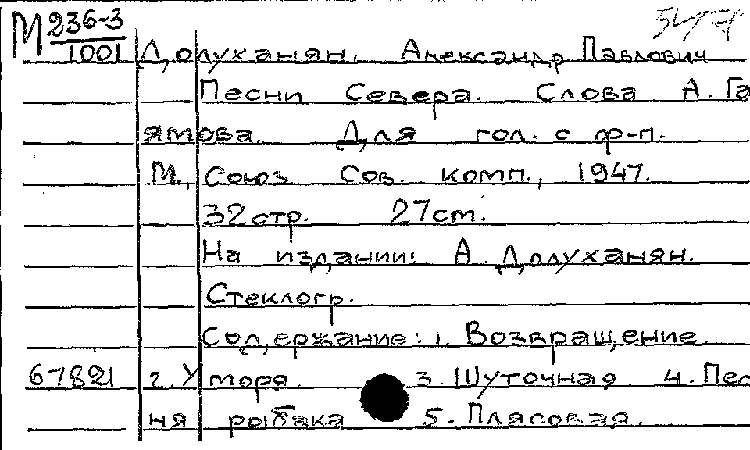 М 236-3
1001 Долуханян, Александр Павлович
Песни Севера. Слова А. Га
ямова. Для гол. с ф-п.
М., Союз Сов. комп., 1947.
32 стр. 27 см.
На издании: А. Долуханян.
Стеклогр.
Содержание: 1. Возвращение
67821 2. У моря. 3. Шуточная 4. Пес
ня рыбака 5. Плясовая.